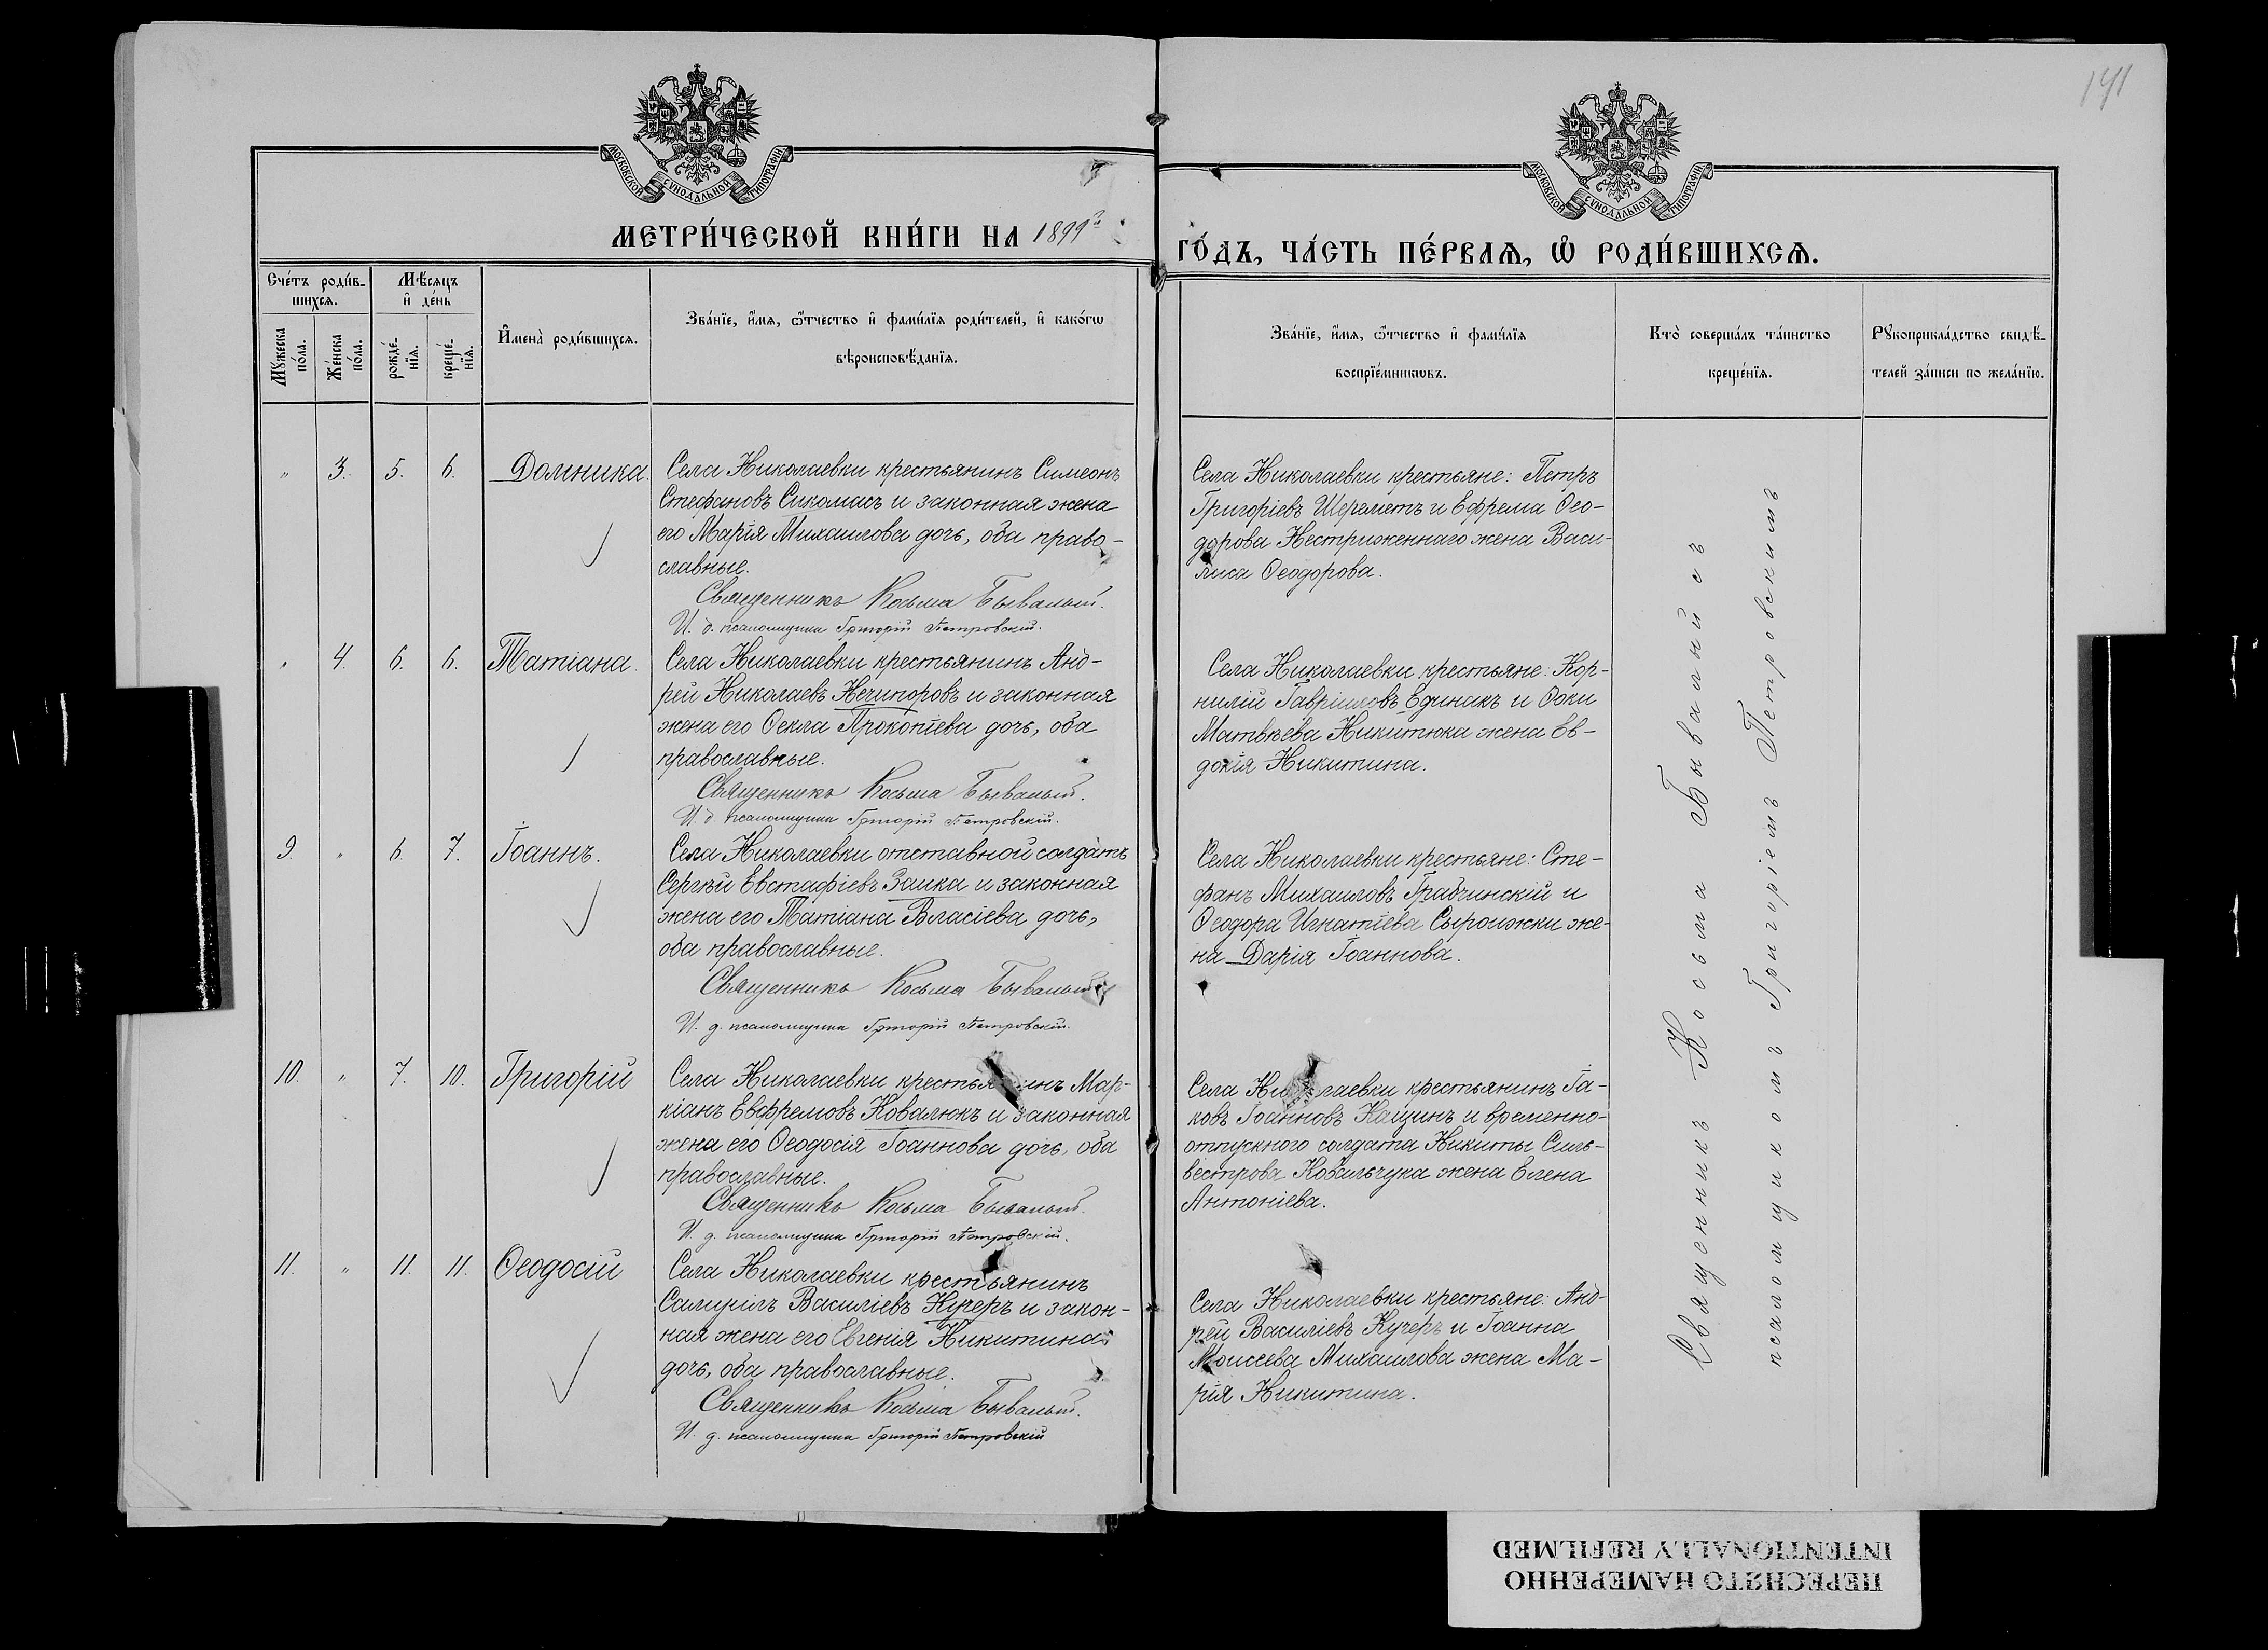 141
МОСКОВСКОЙ СѴНОДАЛЬНОЙ ТИПОГРАФІИ
МОСКОВСКОЙ СѴНОДАЛЬНОЙ ТИПОГРАФІИ
МЕТРИ́ЧЕСКОЙ КНИ́ГИ НА 1899й
ГО́ДЪ, ЧА́СТЬ ПЕ́РВАѦ, Ѽ РОДИ́ВШИХСѦ.
Сче́тъ роди́в-
шихсѧ.
Мѣ́сѧцъ
и҆ де́нь
Мꙋжеска
по́ла.
Же́нска
по́ла.
рожде́-
нїѧ.
креще́-
нїѧ.
И҆мена̀ роди́вшихсѧ.
Зва́нїе, и҆́мѧ, ѻ҆́тчество и҆ фами́лїѧ роди́телей, и҆ како́гѡ
вѣроисповѣ́данїѧ.
Зва́нїе, и҆́мѧ, ѻ҆́тчество и҆ фами́лїѧ
воспрїе́мникѡвъ.
Кто̀ соверша́лъ та́инство
креще́нїѧ.
Рꙋкоприкла́дство свидѣ́-
телей за́писи по жела́нїю.
" 3. 5. 6. Домника.
Села Николаевки крестьянинъ Симеонъ
Стефановъ Сикомасъ и законная жена
его Марія Михаилова дочь, оба право-
славные.
Священникъ Косьма Бывалый.
И. д. псаломщика Григорій Петровскій.
Села Николаевки крестьяне: Петръ
Григоріевъ Шереметъ и Ефрема Ѳео-
дорова Нестриженнаго жена Васи-
лиса Ѳеодорова.
" 4. 6. 6. Татіана.
Села Николаевки крестьянинъ Анд-
рей Николаевъ Нечипоровъ и законная
жена его Ѳекла Прокопіева дочь, оба
православные.
Священникъ Косьма Бывалый.
И. д. псаломщика Григорій Петровскій.
Села Николаевки крестьяне: Кор-
нилій Гавріиловъ Единакъ и Ѳоки
Матвѣева Никитюка жена Ев-
докія Никитина.
9. " 6. 7. Іоаннъ.
Села Николаевки отставной солдатъ
Сергѣй Евстафіевъ Заика и законная
жена его Татіана Власіева дочь,
оба православные.
Священникъ Косьма Бывалый
И. д. псаломщика Григорій Петровскій.
Села Николаевки крестьяне: Сте-
фанъ Михаиловъ Грабчинскій и
Ѳеодора Игнатіева Сыроижки же-
на Дарія Іоаннова.
10. " 7. 10. Григорій
Села Николаевки крестьянинъ Мар-
кіанъ Евфремовъ Ковалюкъ и законная
жена его Ѳеодосія Іоаннова дочь, оба
православные.
Священникъ Косьма Бывалый.
И. д. псаломщика Григорій Петровскій.
Села Николаевки крестьянинъ Іа-
ковъ Іоанновъ Кащинъ и временно-
отпускного солдата Никиты Силь-
вестрова Ковальчука жена Елена
Антоніева.
11. " 11. 11. Ѳеодосій
Села Николаевки крестьянинъ
Самуилъ Василіевъ Кучеръ и закон-
ная жена его Евгенія Никитина
дочь, оба православные.
Священникъ Косьма Бывалый.
И. д. псаломщика Григорій Петровскій
Села Николаевки крестьяне: Анд-
рей Василіевъ Кучеръ и Іоанна
Моисеева Михаилова жена Ма-
рія Никитина.
Священникъ Косьма Бывалый съ
псаломщикомъ Григоріемъ Петровскимъ
ПЕРЕСНЯТО НАМЕРЕННО
INTENTIONALLY REFILMED